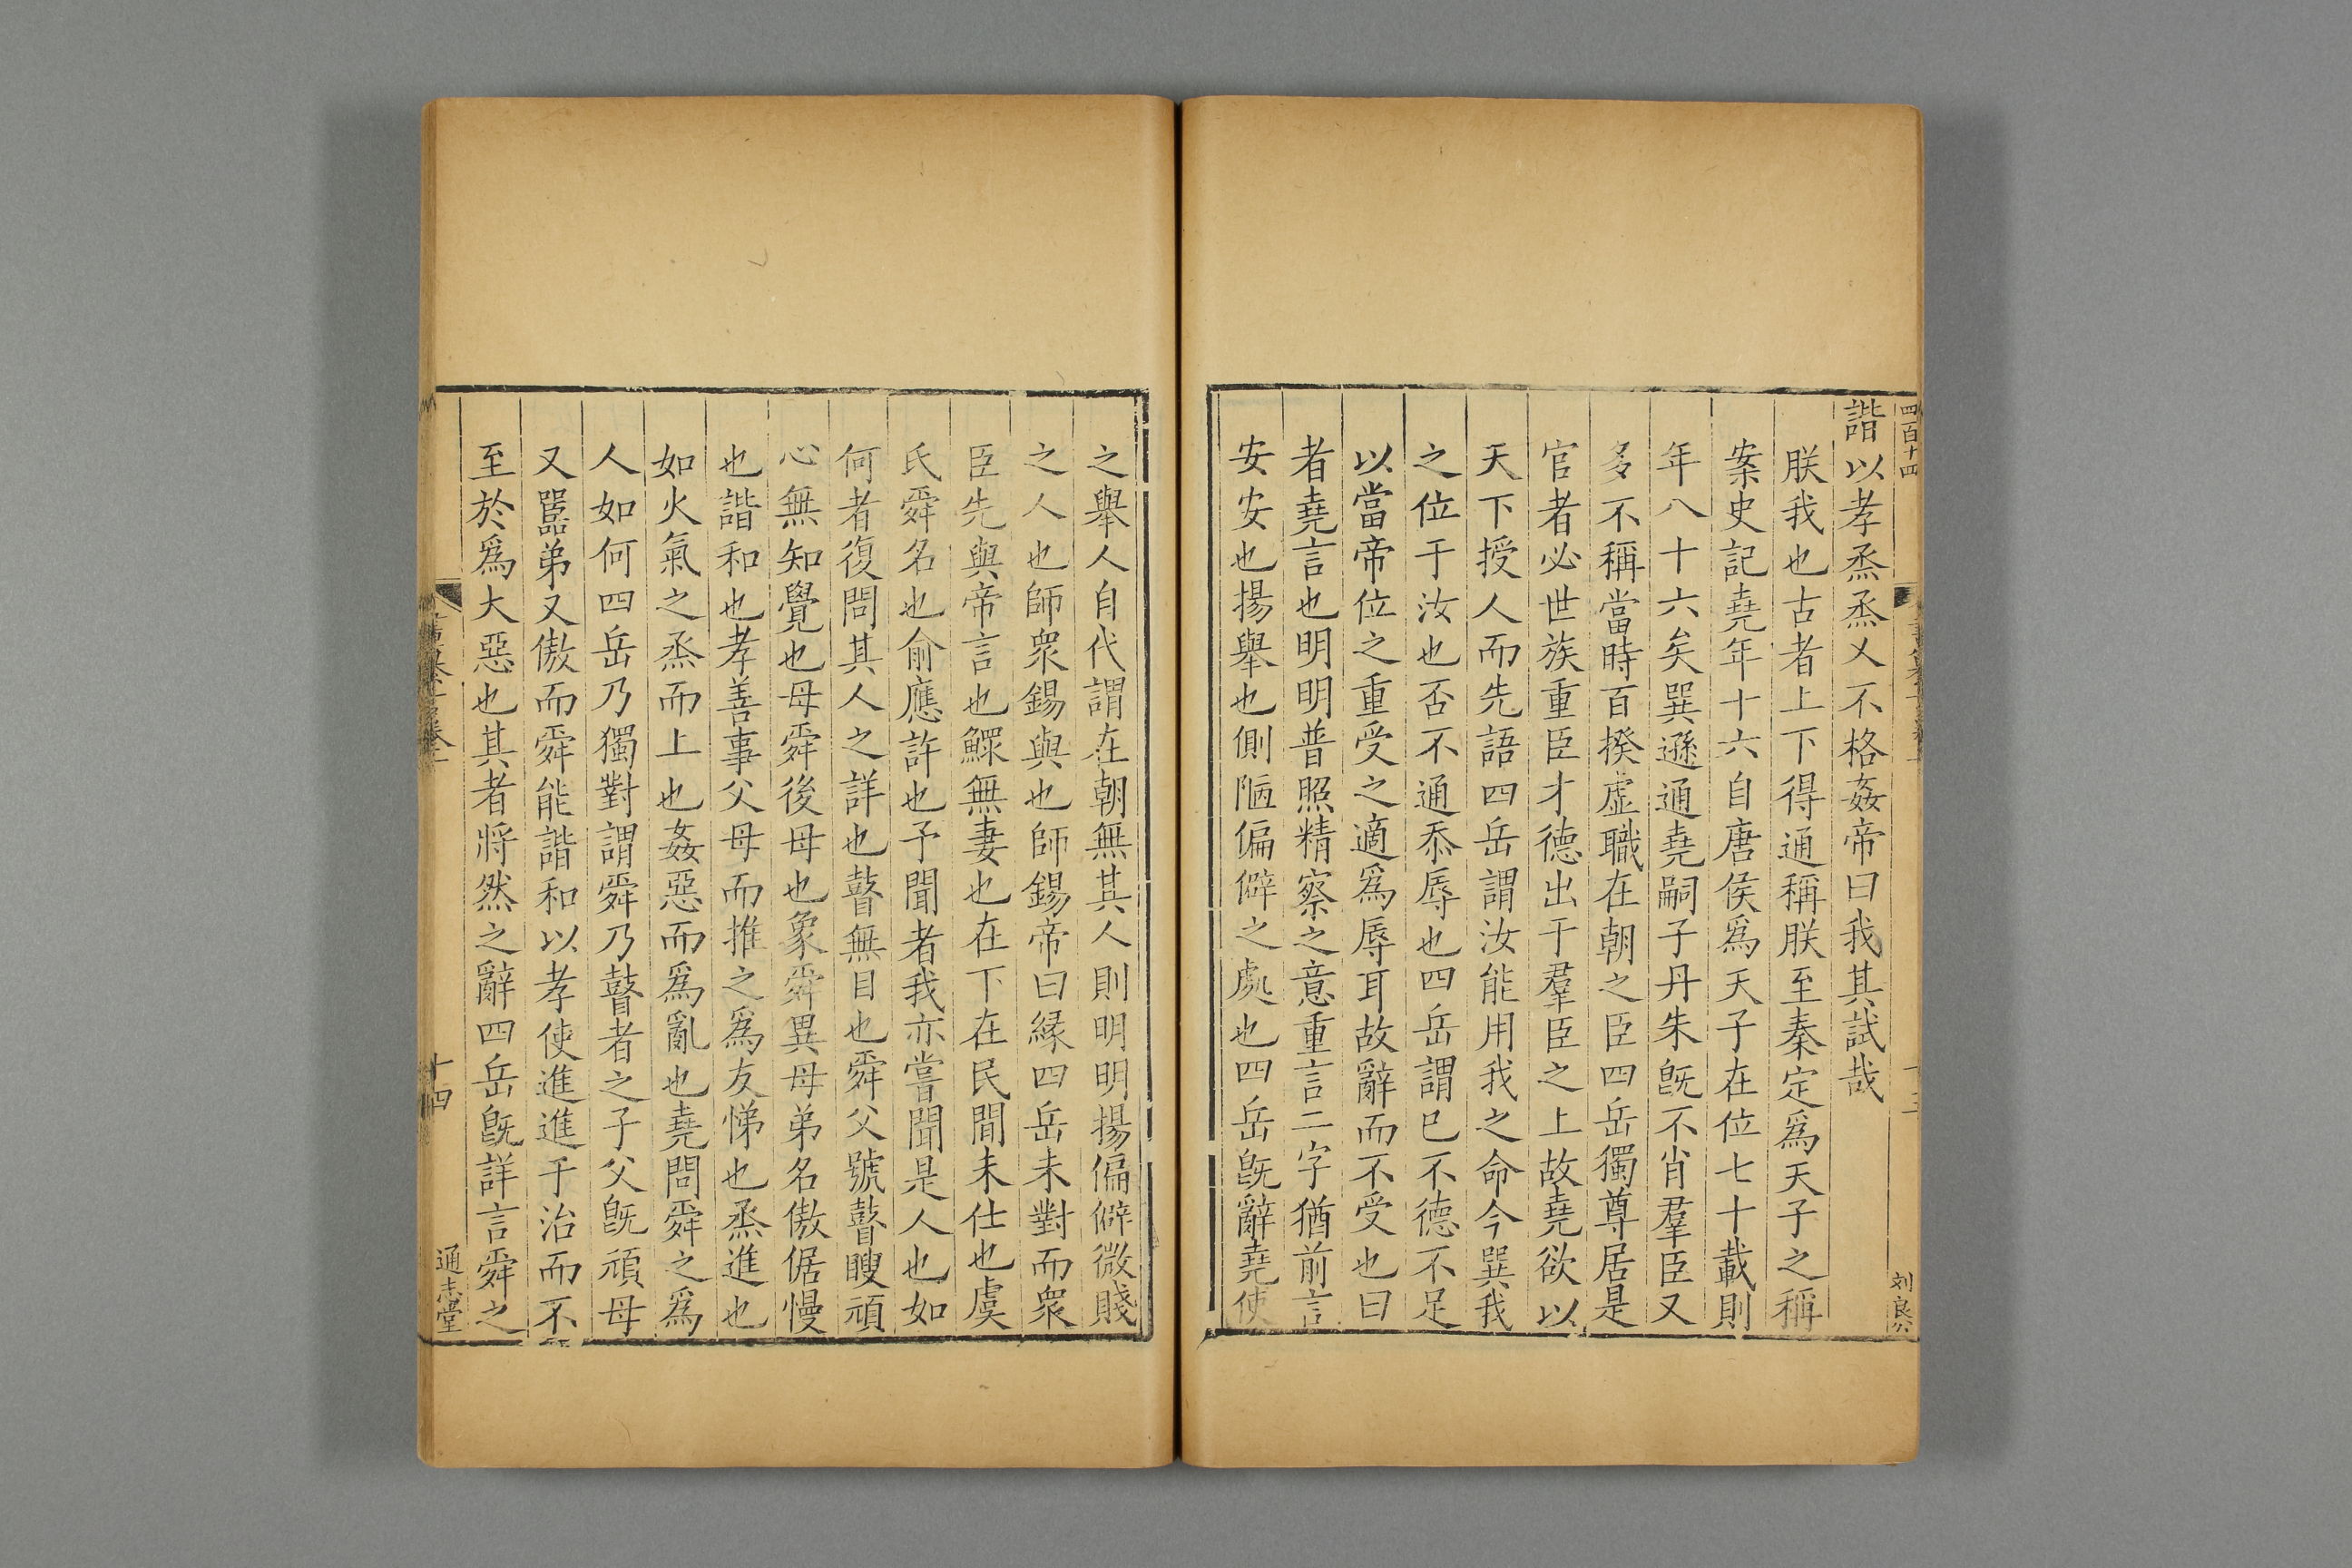 四百十四
刘良公
諧以孝烝烝乂不格姦帝曰我其試哉
朕我也古者上下得通稱朕至秦定爲天子之稱
案史記堯年十六自唐侯爲天子在位七十載則
年八十六矣巽遜通堯嗣子丹朱旣不肖羣臣又
多不稱當時百揆虛職在朝之臣四岳獨尊居是
官者必世族重臣才德出于羣臣之上故堯欲以
天下授人而先語四岳謂汝能用我之命今巽我
之位于汝也否不通忝辱也四岳謂已不德不足
以當帝位之重受之適爲辱耳故辭而不受也曰
者堯言也明明普照精察之意重言二字猶前言
安安也揚舉也側陋偏僻之處也四岳旣辭堯使
之舉人自代謂在朝無其人則明明揚偏僻微賤
之人也師衆錫與也師錫帝曰緣四岳未對而衆
臣先與帝言也鰥無妻也在下在民間未仕也虞
氏舜名也俞應許也予聞者我亦嘗聞是人也如
何者復問其人之詳也瞽無目也舜父號瞽瞍頑
心無知覺也母舜後母也象舜異母弟名傲倨慢
也諧和也孝善事父母而推之爲友悌也烝進也
如火氣之烝而上也姦惡而爲亂也堯問舜之爲
人如何四岳乃獨對謂舜乃瞽者之子父旣頑母
又嚚弟又傲而舜能諧和以孝使進進于治而不
至於爲大惡也其者將然之辭四岳旣詳言舜之
十四
通志堂